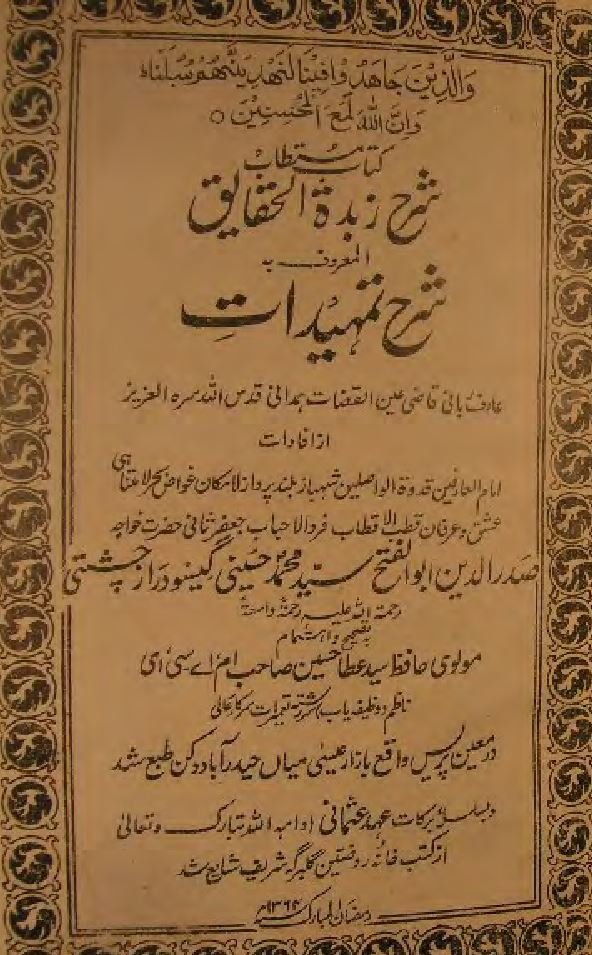 وَالَّذِيْنَ جَاهَدُوْا فِيْنَا لَنَهْدِيَنَّهُمْ سُبُلَنَاه
وَاِنَّ اللّٰهَ لَمَعَ الْمُحْسِنِيْنَ ○
کتاب مستطاب
شرح زبدة الحقایق
المعروف به
شرح تمہیدات
عارف ربانی قاضی عین القضات ہمدانی قدس اللہ سرہ العزیز
از افادات
امام العارفین قدوۃ الواصلین شہباز بلند پرواز لامکان غواص بحر لامتناہی
عشق و عرفان قطب الاقطاب فرد الاحباب جعفر ثانی حضرت خواجہ
صدر الدین ابو الفتح سید محمد حسینی گیسو دراز چشتی
رحمۃ اللہ علیہ رحمۃً واسعۃً
بتصحیح و اہتمام
مولوی حافظ سید عطا حسین صاحب ام اے سی ای
ناظم وظیفہ یاب سررشتہ تعمیرات سرکار عالی
در معین پریس واقع بازار عیسیٰ میاں حیدرآباد دکن طبع شد
و بسلسلۂ برکات عہد عثمانی ادامہ اللہ تبارک و تعالیٰ
از کتب خانہ روضتین گلبرگہ شریف شایع شد
رمضان المبارک ۱۳۶۴ھ